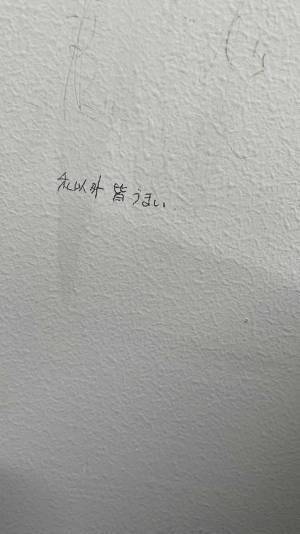 私以外 皆うまい